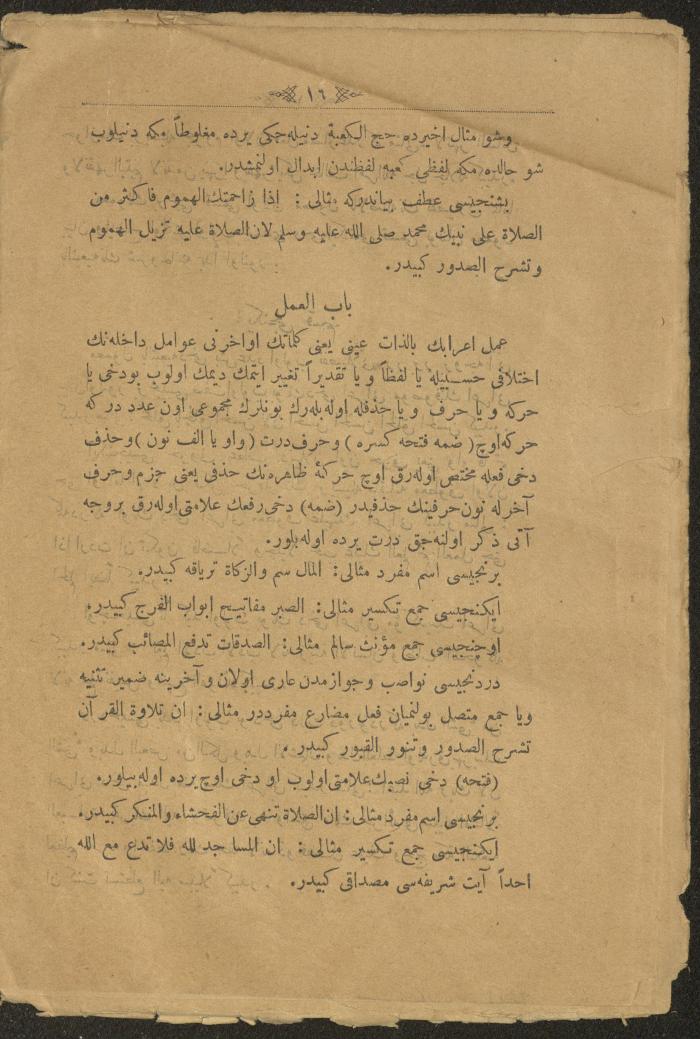 ١٦
وشو مثال اخيرده حج الكعبة دنيله جكى يرده مغلوطاً مكه دنيلوب
شو حالده مكه لفظى كعبه لفظندن ابدال اولنمشدر.
بشنجيسى عطف بياندركه مثالى : اذا زاحمتك الهموم فاكثر من
الصلاة على نبيك محمد صلى الله عليه وسلم لان الصلاة عليه تزيل الهموم
وتشرح الصدور كبيدر.
باب العمل
عمل اعرابك بالذات عينى يعنى كلماتك اواخرنى عوامل داخله نك
اختلافى حسبيله يا لفظاً و يا تقديراً تغيير ايتمك ديمك اولوب بودخى يا
حركه و يا حرف و يا حذفله اوله بله رك بونلرك مجموعى اون عدد در كه
حركه اوچ ( ضمه فتحه كسره ) وحرف درت ( واو يا الف نون ) وحذف
دخى فعله مختص اوله رق اوچ حركۀ ظاهره نك حذفى يعنى جزم وحرف
آخرله نون حرفينك حذفيدر (ضمه) دخى رفعك علامتى اوله رق بروجه
آتى ذكر اولنه جق درت يرده اوله بلور.
برنجيسى اسم مفرد مثالى: المال سم والزكاة ترياقه كبيدر.
ايكنجيسى جمع تكسير مثالى: الصبر مفاتيح ابواب الفرج كبيدر.
اوچنجيسى جمع مؤنث سالم مثالى: الصدقات تدفع المصائب كبيدر.
دردنجيسى نواصب وجوازمدن عارى اولان و آخرينه ضمير تثنيه
ويا جمع متصل بولنميان فعل مضارع مفرددر مثالى : ان تلاوة القرآن
تشرح الصدور وتنور القبور كبيدر .
(فتحه) دخى نصبك علامتى اولوب او دخى اوچ يرده اوله بيلور.
برنجيسى اسم مفرد مثالى: ان الصلاة تنهى عن الفحشاء والمنكر كبيدر.
ايكنجيسى جمع تكسير مثالى : ان المساجد لله فلا تدع مع الله
احداً آيت شريفه سى مصداقى كبيدر.